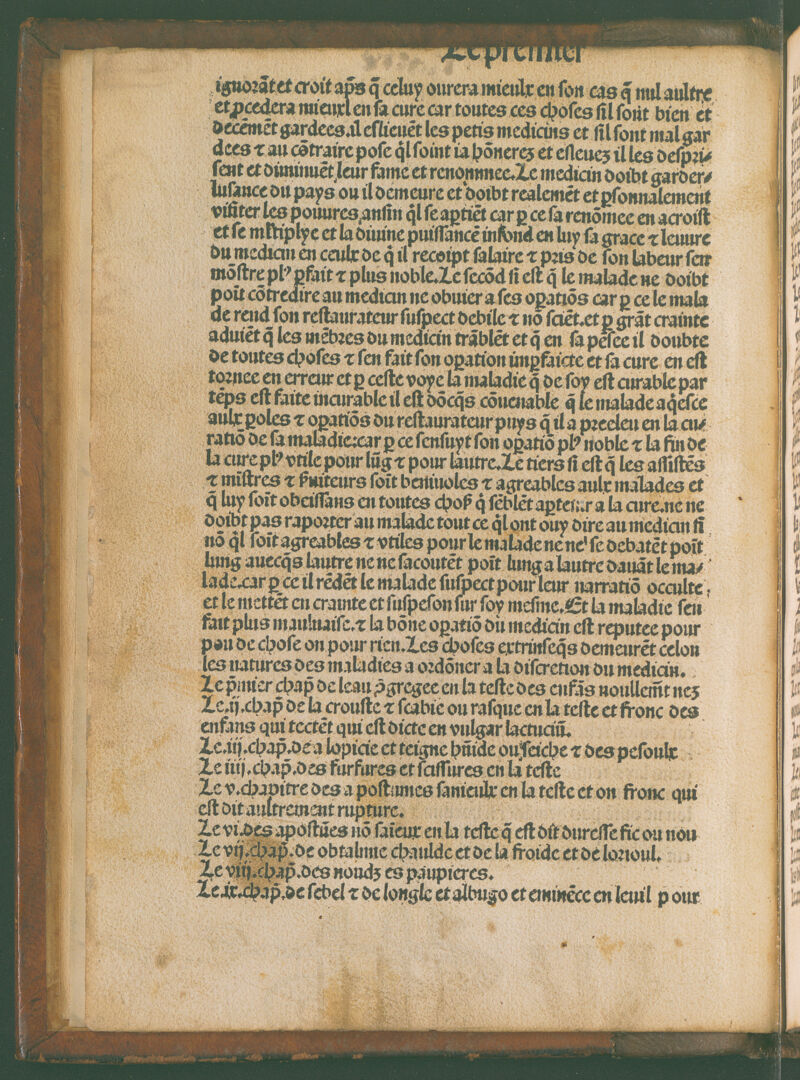 Le premier
ignorãt et croit aps̃ q̃ celuy ourera mieulx en son cas q̃ nul aultre
et ꝓcedera mieuxl en sa cure car toutes ces choses sil sont bien et
decẽmẽt gardees.il eslieuẽt les petis medicins et sil sont mal gar
dees ⁊ au cõtraire pose q̃l soint ia hõnerez et esleuez il les despri⸗
sent et diminuẽt leur fame et renommee.Le medicin doibt garder⸗
lusance du pays ou il demeure et doibt realemẽt et ꝑsonnalement
visiter les pouures,ansin q̃l se aptiẽt car ꝑ ce sa renõmee en acroist
et se mltiplye et la diuine puissance infond en luy sa grace ⁊ leuure
du medicin en ceulx de q̃ il recoipt salaire ⁊ pris de son labeur sen
mõstre plꝰ ꝑfait ⁊ plus noble.Le secõd si est q̃ le malade ne doibt
poit cõtredire au medicin ne obuier a ses oꝑatiõs car ꝑ ce le mala
de rend son restaurateur suspect debile ⁊ nõ sciẽt.et ꝑ grãt crainte
aduiẽt q̃ les mẽbres du medicin trãblẽt et q̃ en sa pẽsee il doubte
de toutes choses ⁊ sen fait son oꝑation imꝑfaicte et sa cure en est
tornee en erreur et ꝑ ceste voye la maladie q̃ de soy est curable par
tẽps est faite incurable il est dõcq̃s cõuenable q̃ le malade aq̃esce
aulx ꝑoles ⁊ oꝑatiõs du restaurateur puys q̃ il a preeleu en la cu⸗
ratiõ de sa maladie:car ꝑ ce sensuyt son oꝑatiõ plꝰ noble ⁊ la fin de
la cure plꝰ vtile pour lũg ⁊ pour lautre.Le tiers si est q̃ les assistẽs
⁊ mĩstres ⁊ ẜuiteurs soĩt beniuoles ⁊ agreables aulx malades et
q̃ luy soĩt obeissans en toutes choẜ q̃ sẽblẽt aꝑtenir a la cure.ne ne
doibt pas raporter au malade tout ce q̃l ont ouy dire au medicin si
nõ q̃l soĩt agreables ⁊ vtiles pour le malade ne ne se debatẽt poĩt
lung auecq̃s lautre ne ne sacoutẽt poĩt lung a lautre dauãt le ma⸗
lade.car ꝑ ce il rẽdẽt le malade suspect pour leur narratiõ occulte,
et le mettẽt en crainte et suspeson sur soy mesme.Et la maladie sen
fait plus mauluaise.⁊ la bõne oꝑatiõ du medicin est reputee pour
peu de chose on pour rien.Les choses extrinseq̃s demeurẽt celon
les natures des maladies a ordõner a la discretion du medicin.
Le p̃mier chap̃ de leau ꝯgregee en la teste des enfãs noullem̃t nez
Le.ij.chap̃ de la crouste ⁊ scabie ou rasque en la teste et fronc des
enfans qui tectẽt qui est dicte en vulgar lactuciũ.
Le.iij.chap̃.de a lopicie et teigne hũide ou seiche ⁊ des pesoulx
Le iiij.chap̃.des furfures et scissures en la teste
Le v.chapitre des a postumes sanieulx en la teste et on fronc qui
est dit aultrement rupture.
Le vi.des apostũes nõ saieux en la teste q̃ est dit duresse fic ou nou
Le vij.chap̃.de obtalmie chaulde et de la froide et de lorioul.
Le viij.chap̃.des noudz es paupieres.
Le.ix.chap̃.de sebel ⁊ de longle et albugo et eminẽce en leuil p our